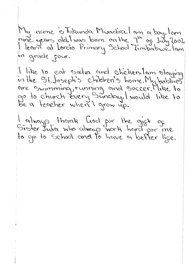 My name is Takunda Muwadzi. I am a boy. I am
nine years old. I was born on the 7th of July 2002
I learn at Loreto Primary School Zimbabwe. I am
in grade four.
I like to eat sadza and chicken. I am staying
in the St. Joseph's children's home. My hobbies
are swimming, running and soccer. I like to
go to church every Sunday. I would like to
be a teacher when I grow up.
I always thank God for the gift of
Sister Julia who always work hard for me
to go to school and to have a better life.